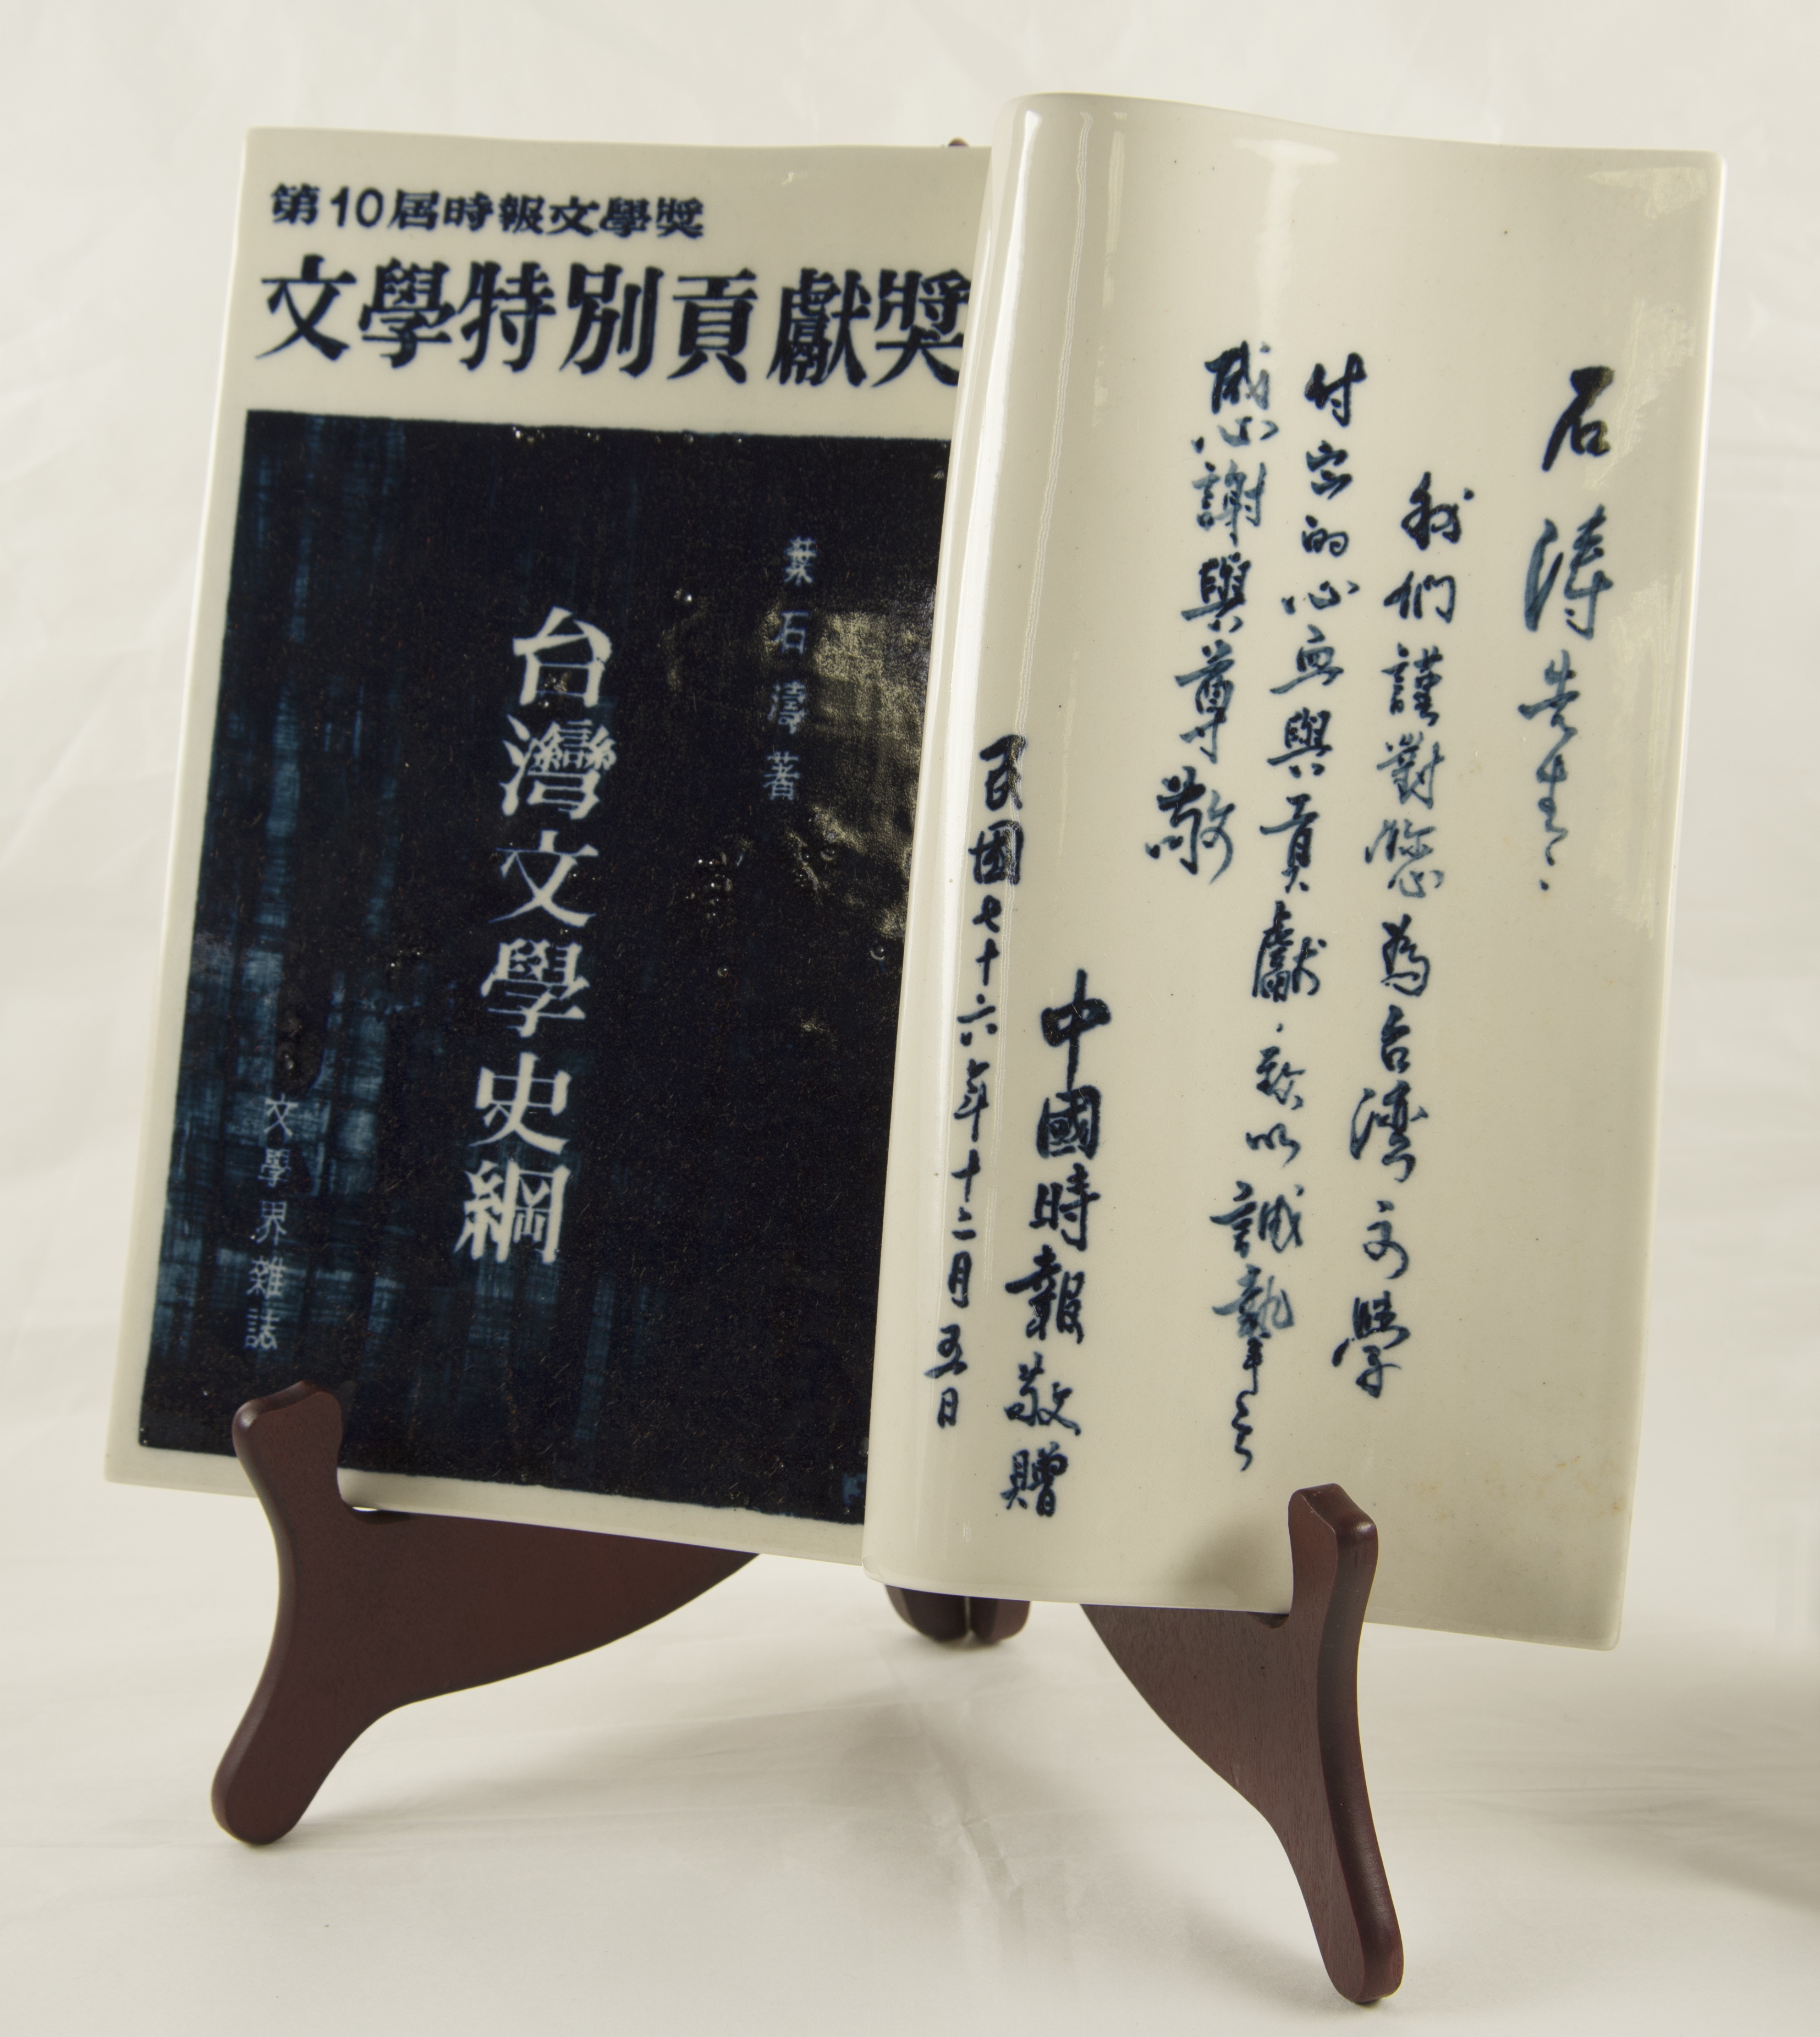 第10屆時報文學獎
文學特別貢獻獎
葉石濤著
台灣文學史綱
文學界雜誌
石涛先生：
我們謹對您為台灣文學
付出的心血與貢獻，致以誠摯之
感謝與尊敬
中國時報敬贈
民國七十六年十二月五日